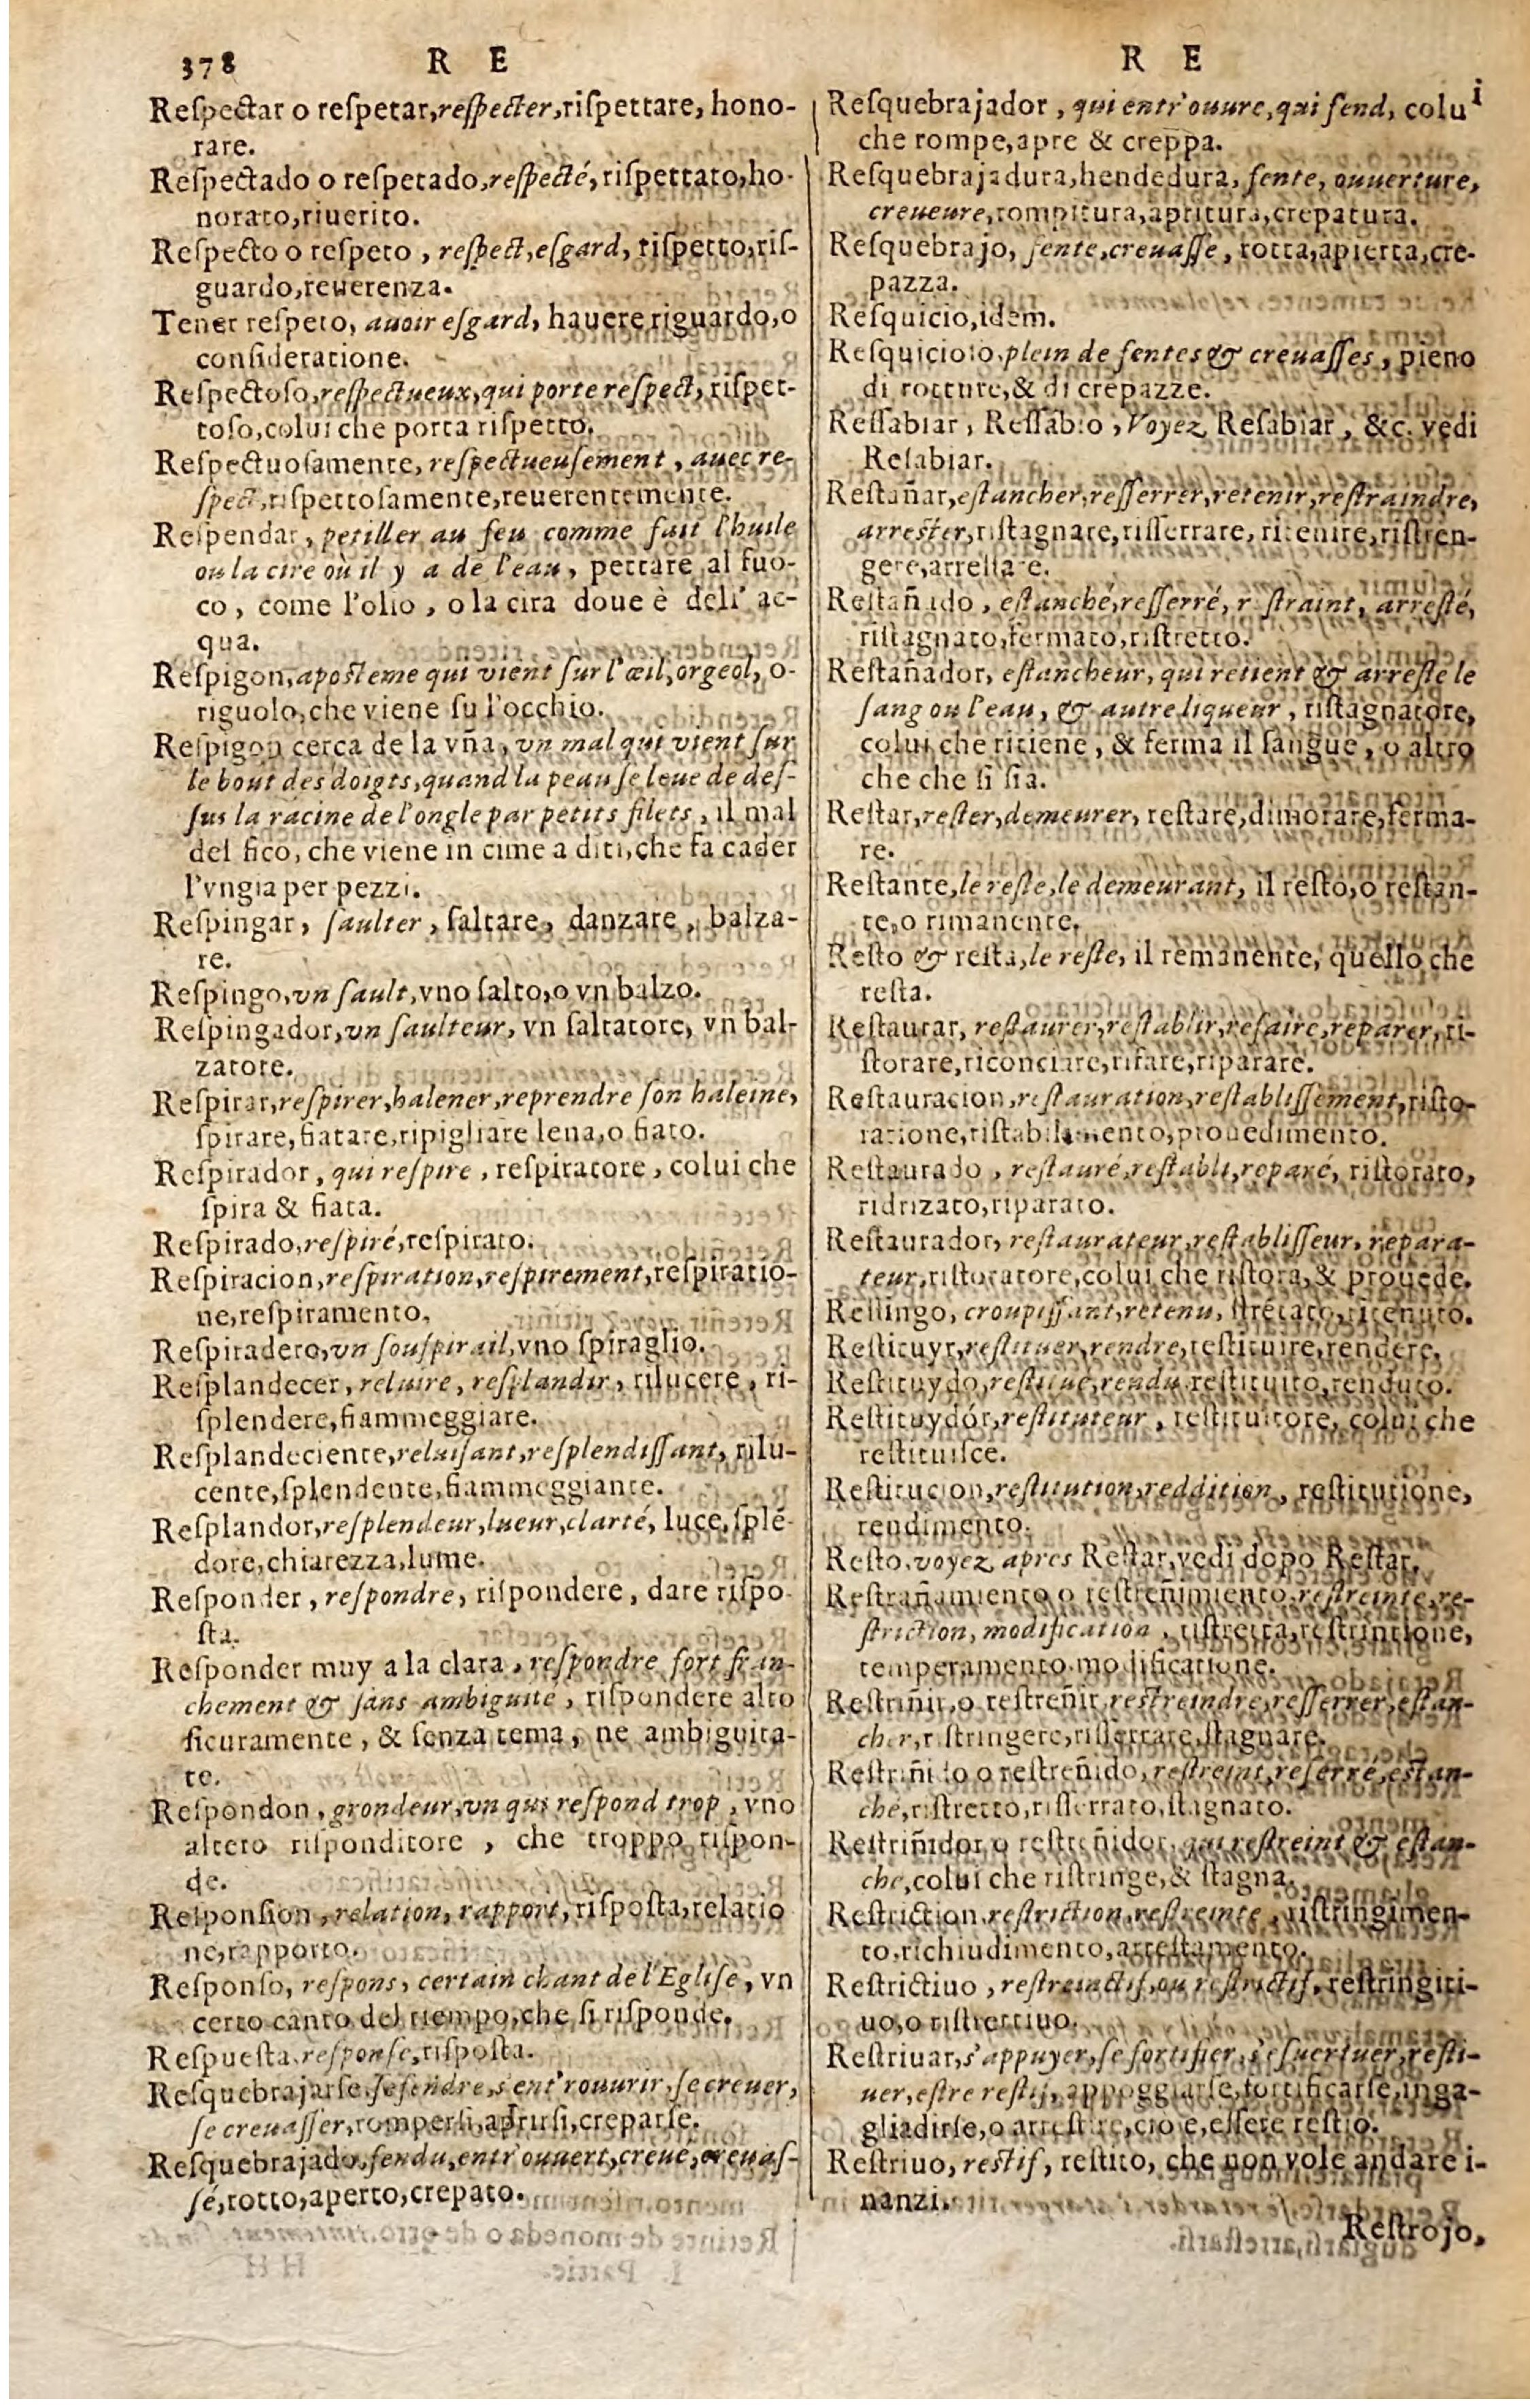 378 R E
Reſpectar o reſpetar,reſpecter,riſpettare, hono-
rare.
Reſpectado o reſpetado,reſpecté,riſpettato,ho-
norato,riuerito.
Reſpecto o reſpeto , reſpect,eſgard, riſpetto,riſ-
guardo,reuerenza.
Tener reſpeto, auoir eſgard, hauere riguardo,o
conſideratione.
Reſpectoſo,reſpectueux,qui porte reſpect, riſpet-
toſo,colui che porta riſpetto.
Reſpectuoſamente, reſpectueuſement , auec re-
ſpect,riſpettoſamente,reuerentemente.
Reſpendar , petiller au feu comme fait l'huile
ou la cire où il y a de l'eau, pettare al fuo-
co , come l'olio , o la cira doue è dell' ac-
qua.
Reſpigon,aposteme qui vient ſur l'œil,orgeol, o-
riguolo,che viene ſu l'occhio.
Reſpigon cerca de la vña, vn mal qui vient ſur
le bout des doigts,quand la peau ſe leue de deſ-
ſus la racine de l'ongle par petits filets , il mal
del fico, che viene in cime a diti,che fa cader
l'vngia per pezzi.
Reſpingar, ſaulter , ſaltare, danzare , balza-
re.
Reſpingo,vn ſault,vno ſalto,o vn balzo.
Reſpingador,vn ſaulteur, vn ſaltatore, vn bal-
zatore.
Reſpirar,reſpirer,halener,reprendre ſon haleine,
ſpirare,fiatare,ripigliare lena,o fiato.
Reſpirador , qui reſpire , reſpiratore , colui che
ſpira & fiata.
Reſpirado,reſpiré,reſpirato.
Reſpiracion,reſpiration,reſpirement,reſpiratio-
ne,reſpiramento.
Reſpiradero,vn ſouſpirail,vno ſpiraglio.
Reſplandecer, reluire, reſplandir, rilucere , ri-
ſplendere,fiammeggiare.
Reſplandeciente,reluiſant,reſplendiſſant, rilu-
cente,ſplendente,fiammeggiante.
Reſplandor,reſplendeur,lueur,clarté, luce,ſplé-
dore,chiarezza,lume.
Reſponder , reſpondre, riſpondere , dare riſpo-
ſta.
Reſponder muy a la clara , reſpondre fort fran-
chement & ſans ambiguité , riſpondere alto
ſicuramente , & ſenza tema , ne ambiguita-
te.
Reſpondon , grondeur,vn qui reſpond trop , vno
altero riſponditore , che troppo riſpon-
de.
Reſponſion , relation, rapport, riſpoſta,relatio
ne,rapporto.
Reſponſo, reſpons, certain chant de l'Egliſe , vn
certo canto del tiempo,che ſi riſponde.
Reſpueſta,reſponſe,riſpoſta.
Reſquebrajarſe,ſe fendre,s'entr'ouurir,ſe creuer,
ſe creuaſſer,romperſi,aprirſi,creparſe.
Reſquebrajado,fendu,entr'ouuert,creué,creuaſ-
ſé,rotto,aperto,crepato.
R E
Reſquebrajador , qui entr'ouure,qui fend, colui
che rompe,apre & creppa.
Reſquebrajadura,hendedura, fente, ouuerture,
creueure,rompitura,apritura,crepatura.
Reſquebrajo, fente,creuaſſe , rotta,apierta,cre-
pazza.
Reſquicio,idem.
Reſquicioſo,plein de fentes & creuaſſes , pieno
di rotture,& di crepazze.
Reſſabiar , Reſſabio , Voyez Reſabiar , &c. vedi
Reſabiar.
Reſtañar,eſtancher,reſſerrer,retenir,reſtraindre,
arreſter,riſtagnare,riſſerrare, ritenire,riſtren-
gere,arreſtare.
Reſtañado , eſtanché,reſſerré, reſtraint, arreſté,
riſtagnato,fermato,riſtretto.
Reſtañador, eſtancheur, qui retient & arreſte le
ſang ou l'eau, & autre liqueur , riſtagnatore,
colui che ritiene , & ferma il ſangue , o altro
che che ſi ſia.
Reſtar,reſter,demeurer, reſtare,dimorare,ferma-
re.
Reſtante,le reſte,le demeurant, il reſto,o reſtan-
te,o rimanente.
Reſto & reſta,le reſte, il remanente, quello che
reſta.
Reſtaurar, reſtaurer,reſtablir,refaire,reparer,ri-
ſtorare,riconciare,rifare,riparare.
Reſtauracion,reſtauration,reſtabliſſement,riſto-
ratione,riſtabilimento,prouedimento.
Reſtaurado , reſtauré,reſtabli,reparé, riſtorato,
ridrizato,riparato.
Reſtaurador, reſtaurateur,reſtabliſſeur, repara-
teur,riſtoratore,colui che riſtora,& prouede.
Reſtingo, croupiſſant,retenu, ſtrecato,ritenuto.
Reſtituyr,reſtituer,rendre,reſtituire,rendere.
Reſtituydo,reſtitué,rendu,reſtituito,renduto.
Reſtituydór,reſtituteur , reſtituitore, colui che
reſtituiſce.
Reſtitucion,reſtitution,reddition , reſtitutione,
rendimento.
Reſto,voyez apres Reſtar,vedi dopo Reſtar.
Reſtrañamiento o reſtreñimiento,reſtreinte,re-
ſtriction, modification , riſtretta,reſtrintione,
temperamento,modificatione.
Reſtriñir,o reſtreñir,reſtreindre,reſſerrer,eſtan-
cher,riſtringere,riſſerrare,ſtagnare.
Reſtriñido o reſtreñido,reſtreint,reſerré,eſtan-
ché,riſtretto,riſſerrato,ſtagnato.
Reſtriñidor,o reſtreñidor, qui reſtreint & eſtan-
che,colui che riſtringe,& ſtagna.
Reſtriction,reſtriction,reſtreinte, riſtringimen-
to,richiudimento,arreſtamento.
Reſtrictiuo , reſtreinctif,ou reſtrictif, reſtringiti-
uo,o riſtrettiuo.
Reſtriuar,s'appuyer,ſe fortifier,s'eſuertuer,reſti-
uer,eſtre reſtif, appoggiarſe,fortificarſe,inga-
gliadirſe,o arreſtare,cio e,eſſere reſtio.
Reſtriuo, reſtif, reſtito, che non vole andare i-
nanzi.
Reſtrojo,